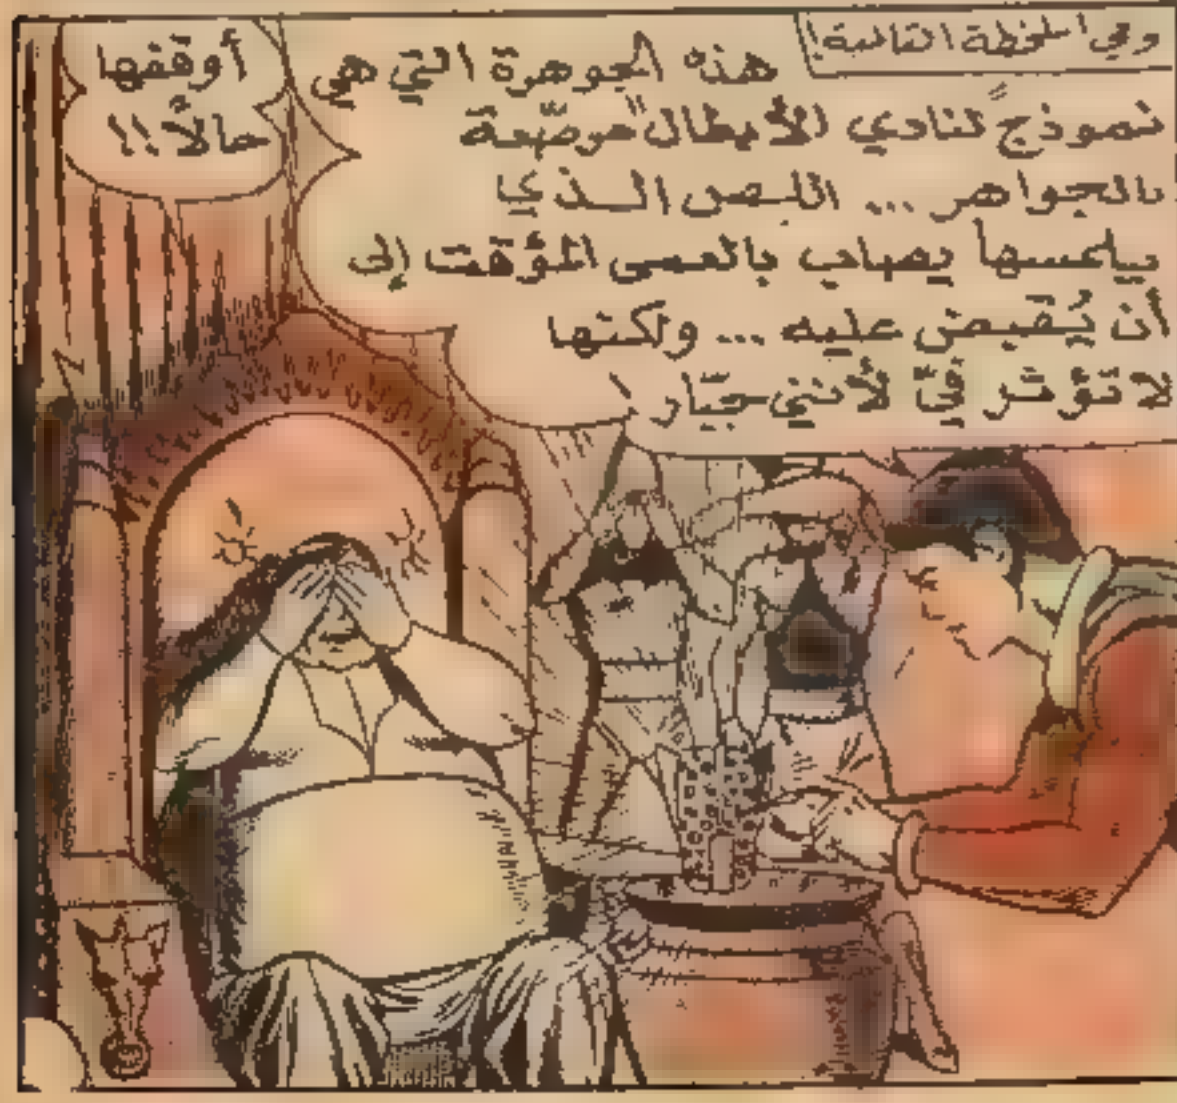 وفي اللحظة التالية!
هذه الجوهرة التي هي
نموذجٌ لنادي الأبطال "مرصّعة
بالجواهر... اللص الذي
يلمسها يصاب بالعمى المؤقت إلى
أن يُقبض عليه... ولكنها
لا تؤثر فيّ لأنني جبّار!
أوقفها
حالاً!!